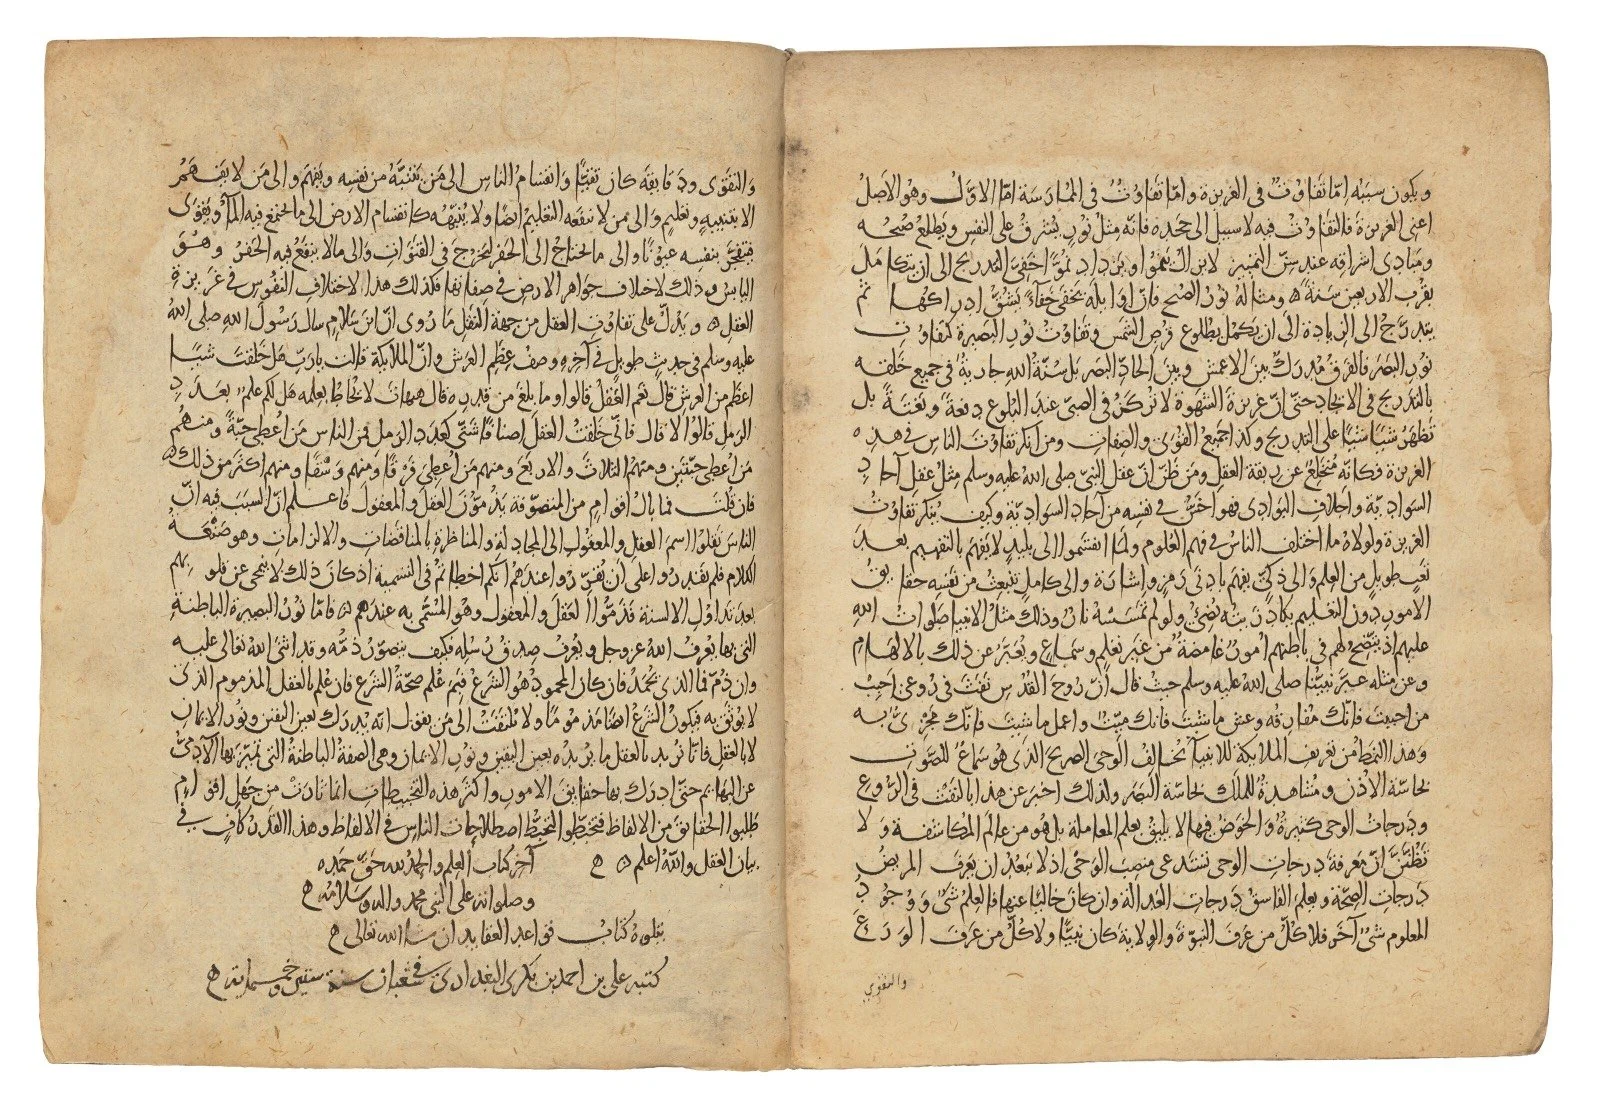 ويكون سببه اما تفاوت في الغريزة واما تفاوت في الممارسة اما الاول وهو الاصل
اعنى الغريزة فالتفاوت فيه لا سبيل الى جحده فانه مثل نور يشرق على النفس ويطلع صبحه
ومبادى اشراقه عند سن التمييز لا يزال ينمو ويزداد نموا خفى التدريج الى ان يتكامل
بقرب الاربعين سنة ومثاله نور الصبح فان اوايله يخفى خفاء يشق ادراكها ثم
يتدرج الى الزيادة الى ان يكمل بطلوع قرص الشمس وتفاوت نور البصيرة كتفاوت
نور البصر فالفرق مدرك بين الاعمش وبين الحاد البصر بل سنة الله جارية في جميع خلقه
بالتدريج في الايجاد حتى ان غريزة الشهوة لا تركن في الصبى عند البلوغ دفعة وبغتة بل
تظهر شيا شيا على التدريج وكذا جميع القوى والصفات ومن انكر تفاوت الناس في هذه
الغريزة فكانه منخلع عن ربقة العقل ومن ظن ان عقل النبى صلى الله عليه وسلم مثل عقل آحاد
السوادية واجلاف البوادى فهو اخس في نفسه من آحاد السوادية وكيف ينكر تفاوت
الغريزة ولولاه ما اختلف الناس في فهم العلوم ولما انقسموا الى بليد لا يفهم بالتفهيم بعد
تعب طويل من العلم والى ذكى يفهم بادنى رمز واشارة والى كامل ينبعث من نفسه حقايق
الامور دون التعليم يكاد زيته يضئ ولو لم تمسسه نار وذلك مثل الانبيا صلوات الله
عليهم اذ يتضح لهم في باطنهم امور غامضة من غير تعلم وسماع ويعبر عن ذلك بالالهام
وعن مثله عبر نبينا صلى الله عليه وسلم حيث قال ان روح القدس نفث في روعى احبب
من احببت فانك مفارقه وعش ما شيت فانك ميت واعمل ما شيت فانك مجزى به
وهذا النمط من تعريف الملايكة للانبيآ يخالف الوحى الصريح الذى هو سماع للصوت
بحاسة الاذن ومشاهدة للملك بحاسة البصر ولذلك اخبر عن هذا بالنفث في الروع
ودرجات الوحى كثيرة والخوض فيها لا يليق بعلم المعاملة بل هو من عالم المكاشفة ولا
تظنن ان معرفة درجات الوحى تستدعى منصب الوحى اذ لا يبعد ان يعرف المريض
درجات الصحة ويعلم الفاسق درجات العدالة وان كان خاليا عنها فالعلم شئ ووجود
المعلوم شئ آخر فلا كل من عرف النبوة والولاية كان نبيا ولا كل من عرف الورع
والتقوى
والتقوى ودقايقه كان تقيا وانقسام الناس الى من يتنبه من نفسه ويفهم والى من لا يفهم
الا بتنبيه وتعليم والى من لا ينفعه التعليم ايضا ولا ينبهه كانقسام الارض الى ما يجتمع فيه المآ ويقوى
فيتفجر بنفسه عيونا والى ما يحتاج الى الحفر ليخرج في القنوات والى ما لا ينفع فيه الحفر وهو
اليابس وذلك لاختلاف جواهر الارض في صفاتها فكذلك هذا الاختلاف النفوس في غريزة
العقل ويدل على تفاوت العقل من جهة النقل ما روى ان ابن سلام سال رسول الله صلى الله
عليه وسلم في حديث طويل في آخره وصف عظم العرش وان الملايكة قالت يا رب هل خلقت شيا
اعظم من العرش قال نعم العقل قالوا وما بلغ من قدره قال هيهات لا يحاط بعلمه هل لكم علم بعدد
الرمل قالوا لا قال فانى خلقت العقل اصنافا شتى كعدد الرمل فمن الناس من اعطى حبة ومنهم
من اعطى حبتين ومنهم الثلاث والاربع ومنهم من اعطى فرقا ومنهم وسقا ومنهم اكثر من ذلك
فان قلت فما بال اقوام من المتصوفة يذمون العقل والمعقول فاعلم ان السبب فيه ان
الناس نقلوا اسم العقل والمعقول الى المجادلة والمناظرة بالمناقضات والالزامات وهو صنعة
الكلام فلم يقدروا على ان يقرروا عندهم انكم اخطاتم في التسمية اذ كان ذلك لا ينمحى عن قلوبهم
بعد تداول الالسنة فذموا العقل والمعقول وهو المسمى به عندهم فاما نور البصيرة الباطنة
التى بها يعرف الله عز وجل ويعرف صدق رسله فكيف يتصور ذمه وقد اثنى الله تعالى عليه
وان ذم فما الذى يحمد فان كان المحمود هو الشرع فبم علم صحة الشرع فان علم بالعقل المذموم الذى
لا يوثق به فيكون الشرع ايضا مذموما ولا تلتفت الى من يقول انه يدرك بعين اليقين ونور الايمان
لا بالعقل فانا نريد بالعقل ما يريده بعين اليقين ونور الايمان وهى الصفة الباطنة التى تميز بها الآدمى
عن البهايم حتى ادرك بها حقايق الامور واكثر هذه التخبيطات انما ثارت من جهل اقوام
طلبوا الحقايق من الالفاظ فتخبطوا لتخبط اصطلاحات الناس في الالفاظ وهذا القدر كاف في
بيان العقل والله اعلم آخر كتاب العلم والحمد لله حق حمده
وصلواته على النبى محمد واله وسلامه
يتلوه كتاب قواعد العقايد ان شا الله تعالى
كتبه على بن احمد بن بكرى البغدادى في شعبان سنة ستين وخمسماية